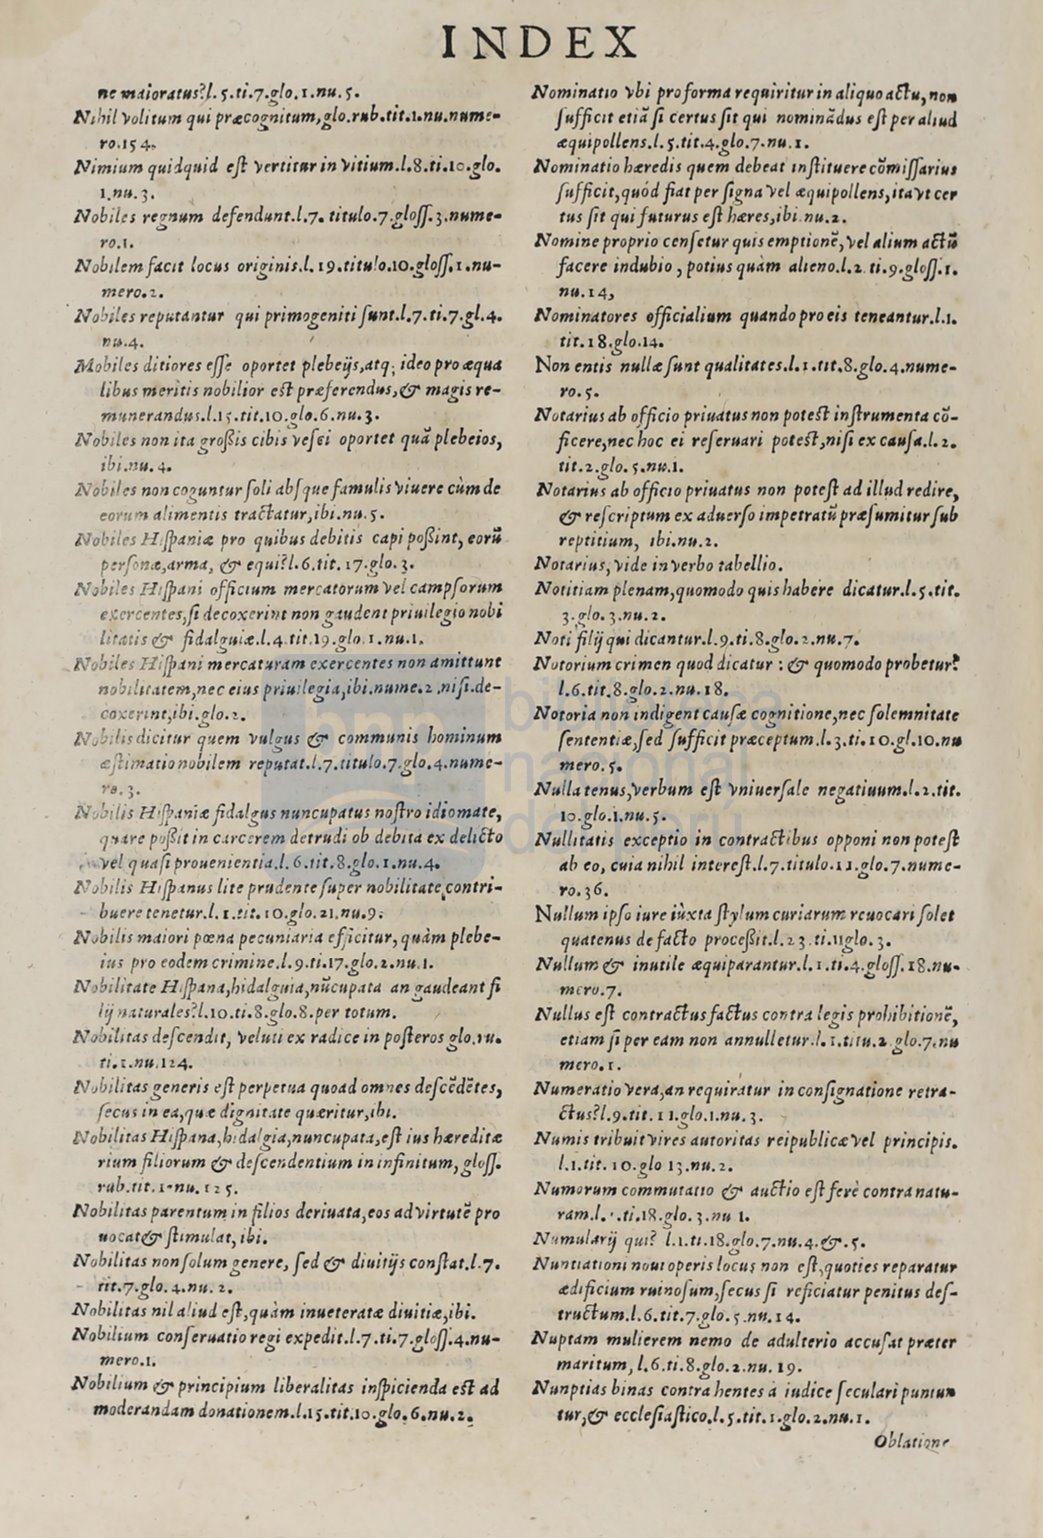 INDEX
ne maioratus?l. 5.ti.7.glo.1.nu.5.
Nihil volitum qui præcognitum,glo.rub.tit.1.nu.nume-
ro.154.
Nimium quidquid est vertitur in vitium.l.8.ti.10.glo.
1.nu.3.
Nobiles regnum defendunt.l.7. titulo.7.gloss.3.nume-
ro.1.
Nobilem facit locus originis.l.19.titulo.10.gloss.1.nu-
mero.2.
Nobiles reputantur qui primogeniti sunt.l.7.ti.7.gl.4.
nu.4.
Mobiles ditiores esse oportet plebeijs,atq; ideo pro æqua
libus meritis nobilior est præferendus,& magis re-
munerandus.l.15.tit.10.glo.6.nu.3.
Nobiles non ita grossis cibis vesci oportet quã plebeios,
ibi.nu.4.
Nobiles non coguntur soli absque famulis viuere cùm de
eorum alimentis tractatur,ibi.nu.5.
Nobiles Hispaniæ pro quibus debitis capi possint, eorũ
personæ,arma, & equi?l.6.tit.17.glo.3.
Nobiles Hispani officium mercatorum vel campsorum
exercentes,si decoxerint non gaudent priuilegio nobi
litatis & fidalguiæ.l.4.tit.19.glo.1.nu.1.
Nobiles Hispani mercaturam exercentes non amittunt
nobilitatem,nec eius priuilegia,ibi.nume.2 .nisi.de-
coxerint,ibi.glo.2.
Nobilis dicitur quem vulgus & communis hominum
æstimatio nobilem reputat.l.7.titulo.7.glo.4.nume-
ro.3.
Nobilis Hispaniæ fidalgus nuncupatus nostro idiomate,
quare possit in carcerem detrudi ob debita ex delicto
vel quasi prouenientia.l.6.tit.8.glo.1.nu.4.
Nobilis Hispanus lite prudente super nobilitate,contri-
buere tenetur.l.1.tit.10.glo.21.nu.9.
Nobilis maiori pœna pecuniaria efficitur, quàm plebe-
ius pro eodem crimine.l.9.ti.17.glo.2.nu.1.
Nobilitate Hispana,hidalguia,nũcupata an gaudeant fi
lij naturales?l.10.ti.8.glo.8.per totum.
Nobilitas descendit, veluti ex radice in posteros glo.ru.
ti.1.nu.124.
Nobilitas generis est perpetua quoad omnes descẽdẽtes,
secus in ea,quæ dignitate quæritur,ibi.
Nobilitas Hispana,hidalgia,nuncupata,est ius hæreditæ
rium filiorum & descendentium in infinitum, gloss.
rub.tit.1.nu.125.
Nobilitas parentum in filios deriuata,eos ad virtutẽ pro
uocat& stimulat, ibi.
Nobilitas non solum genere, sed & diuitijs constat.l.7.
tit.7.glo.4.nu.2.
Nobilitas nil aliud est,quàm inueteratæ diuitiæ,ibi.
Nobilium conseruatio regi expedit.l.7.ti.7.gloss.4.nu-
mero.1.
Nobilium & principium liberalitas inspicienda est ad
moderandam donationem.l.15.tit.10.glo.6.nu.2.
Nominatio vbi pro forma requiritur in aliquo actu, non
sufficit etiã si certus sit qui nominãdus est per aliud
æquipollens.l.5.tit.4.glo.7.nu.1.
Nominatio hæredis quem debeat instituere cõmissarius
sufficit,quòd fiat per signa vel æquipollens,ita vt cer
tus sit qui futurus est hæres,ibi.nu.2.
Nomine proprio censetur quis emptionẽ,vel alium actũ
facere in dubio , potius quàm alieno.l.2.ti.9.gloss.1.
nu.14,
Nominatores officialium quando pro eis teneantur.l.1.
tit.18.glo.14.
Non entis nullæ sunt qualitates.l.1.tit.8.glo.4.nume-
ro.5.
Notarius ab officio priuatus non potest instrumenta cõ-
ficere,nec hoc ei reseruari potest,nisi ex causa.l.2.
tit.2.glo.5.nu.1.
Notarius ab officio priuatus non potest ad illud redire,
& rescriptum ex aduerso impetratũ præsumitur sub
reptitium, ibi.nu.2.
Notarius, vide in verbo tabellio.
Notitiam plenam,quomodo quis habere dicatur.l.5.tit.
3.glo.3.nu.2.
Noti filij qui dicantur.l.9.ti.8.glo.2.nu.7.
Notorium crimen quod dicatur : & quomodo probetur?
l.6.tit.8.glo.2.nu.18.
Notoria non indigent causæ cognitione,nec solemnitate
sententiæ,sed sufficit præceptum.l.3.ti.10.gl.10.nu
mero.5.
Nulla tenus,verbum est vniuersale negatiuum.l.2.tit.
10.glo.1.nu.5.
Nullitatis exceptio in contractibus opponi non potest
ab eo, cuia nihil interest.l.7.titulo.11.glo.7.nume-
ro.36.
Nullum ipso iure iùxta stylum curiarum reuocari solet
quatenus de facto processit.l.23.ti.11glo.3.
Nullum & inutile æquiparantur.l.1.ti.4.gloss.18.nu-
mero.7.
Nullus est contractus factus contra legis prohibitionẽ,
etiam si per eam non annulletur.l.1.titu.2.glo.7.nu
mero.1.
Numeratio vera,an requiratur in consignatione retra-
ctus?l.9.tit.11.glo.1.nu.3.
Numis tribuit vires autoritas reipublicæ vel principis.
l.1.tit.10.glo 13.nu.2.
Numorum commutatio & auctio est ferè contra natu-
ram.l. .ti.18.glo.3.nu 1.
Numularij qui? l.1.ti.18.glo.7.nu.4.&.5.
Nuntiationi noui operis locus non est,quoties reparatur
ædificium ruinosum,secus si reficiatur penitus des-
tructum.l.6.tit.7.glo.5.nu.14.
Nuptam mulierem nemo de adulterio accusat præter
maritum, l.6.ti.8.glo.2.nu.19.
Nunptias binas contra hentes à iudice seculari puniun
tur,& ecclesiastico.l.5.tit.1.glo.2.nu.1.
Oblatione
bnp biblioteca
nacional
del perú